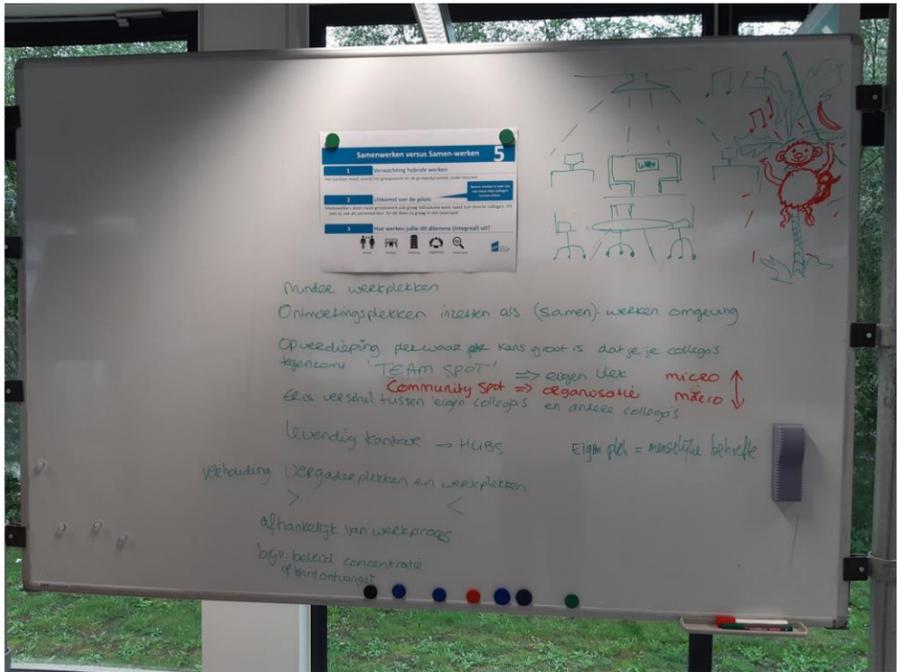 Samenwerken versus Samen-werken 5
1 Verwachting hybride werken
2 Uitkomst van de pilots
3 Hoe werken jullie dit dilemma (integraal) uit?
Minder werkplekken
Ontmoetingsplekken inzetten als (samen)-werken omgeving
Op verdieping plek waar de kans groot is dat je je collega's
tegenkomt 'TEAM SPOT' => eigen plek micro
Community spot => organisatie macro
Er is verschil tussen 'eigen' collega's en andere collega's
Levendig kantoor → HUBS
Eigen plek = menselijke behoefte
Verhouding Vergaderplekken en werkplekken
> <
afhankelijk van werkproces
bijv. beleid concentratie
of klantontvangst